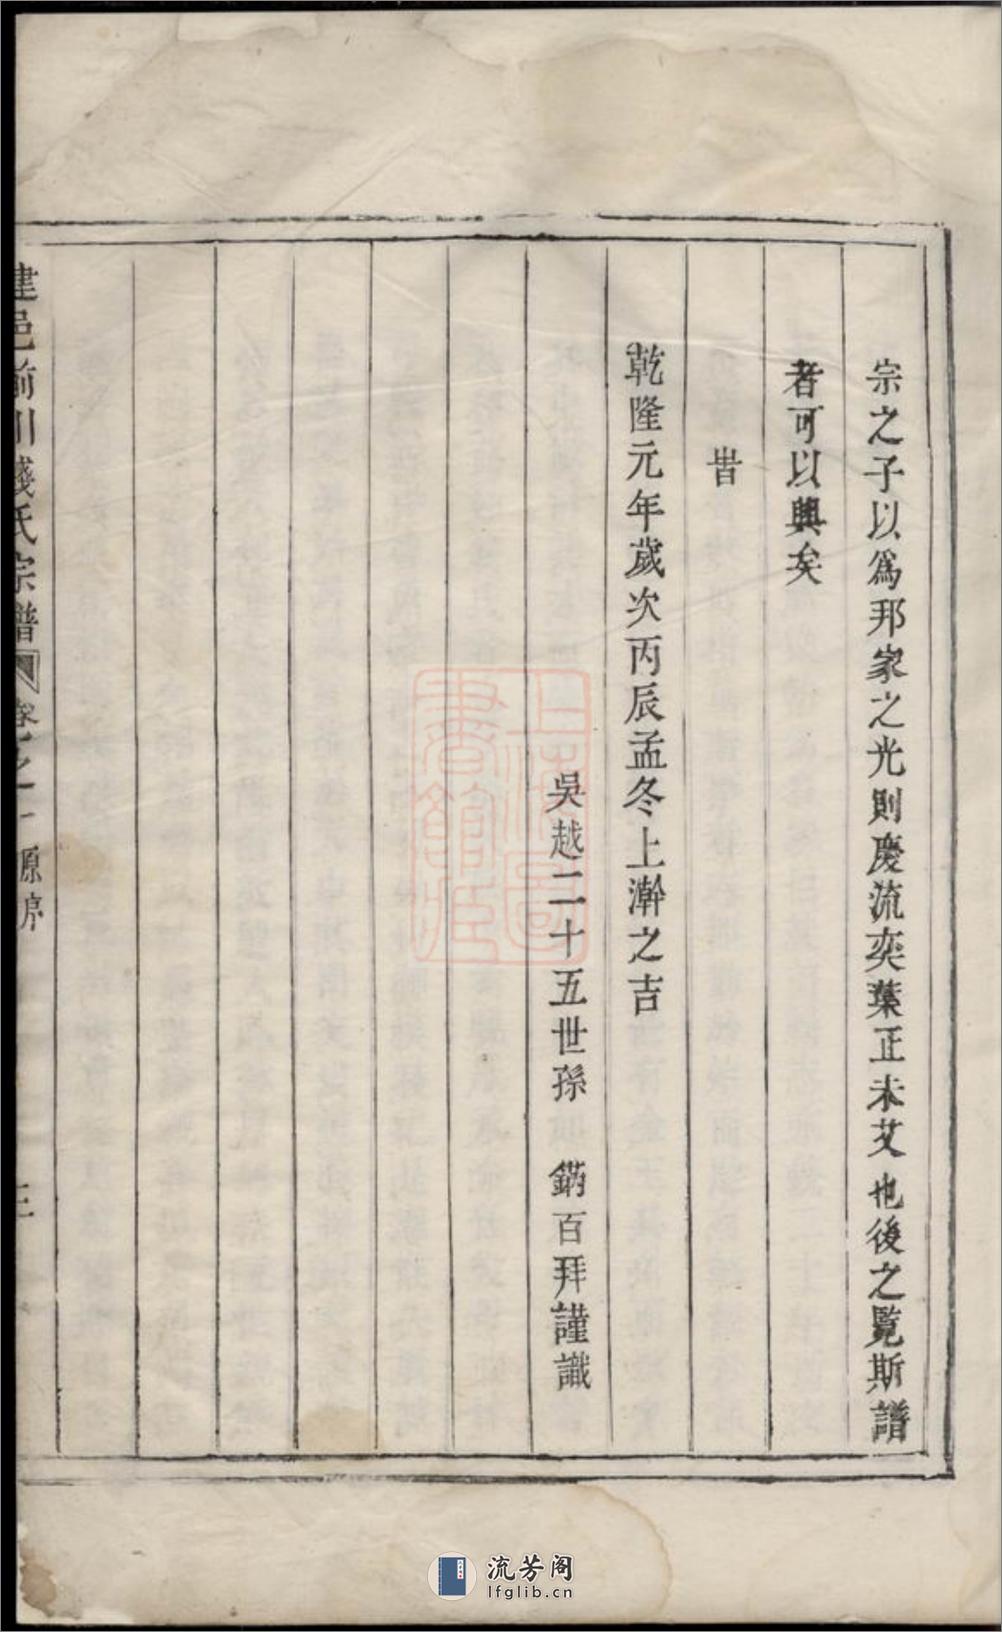 宗之子以爲邦家之光則慶流奕葉正未艾也後之覧斯譜
者可以興矣
旹
乾隆元年歲次丙辰孟冬上澣之吉
吳越二十五世孫 鏋百拜謹識
建邑前川錢氏宗譜 卷之一 原序 三
上海圖書館藏
流芳阁
lfglib.cn